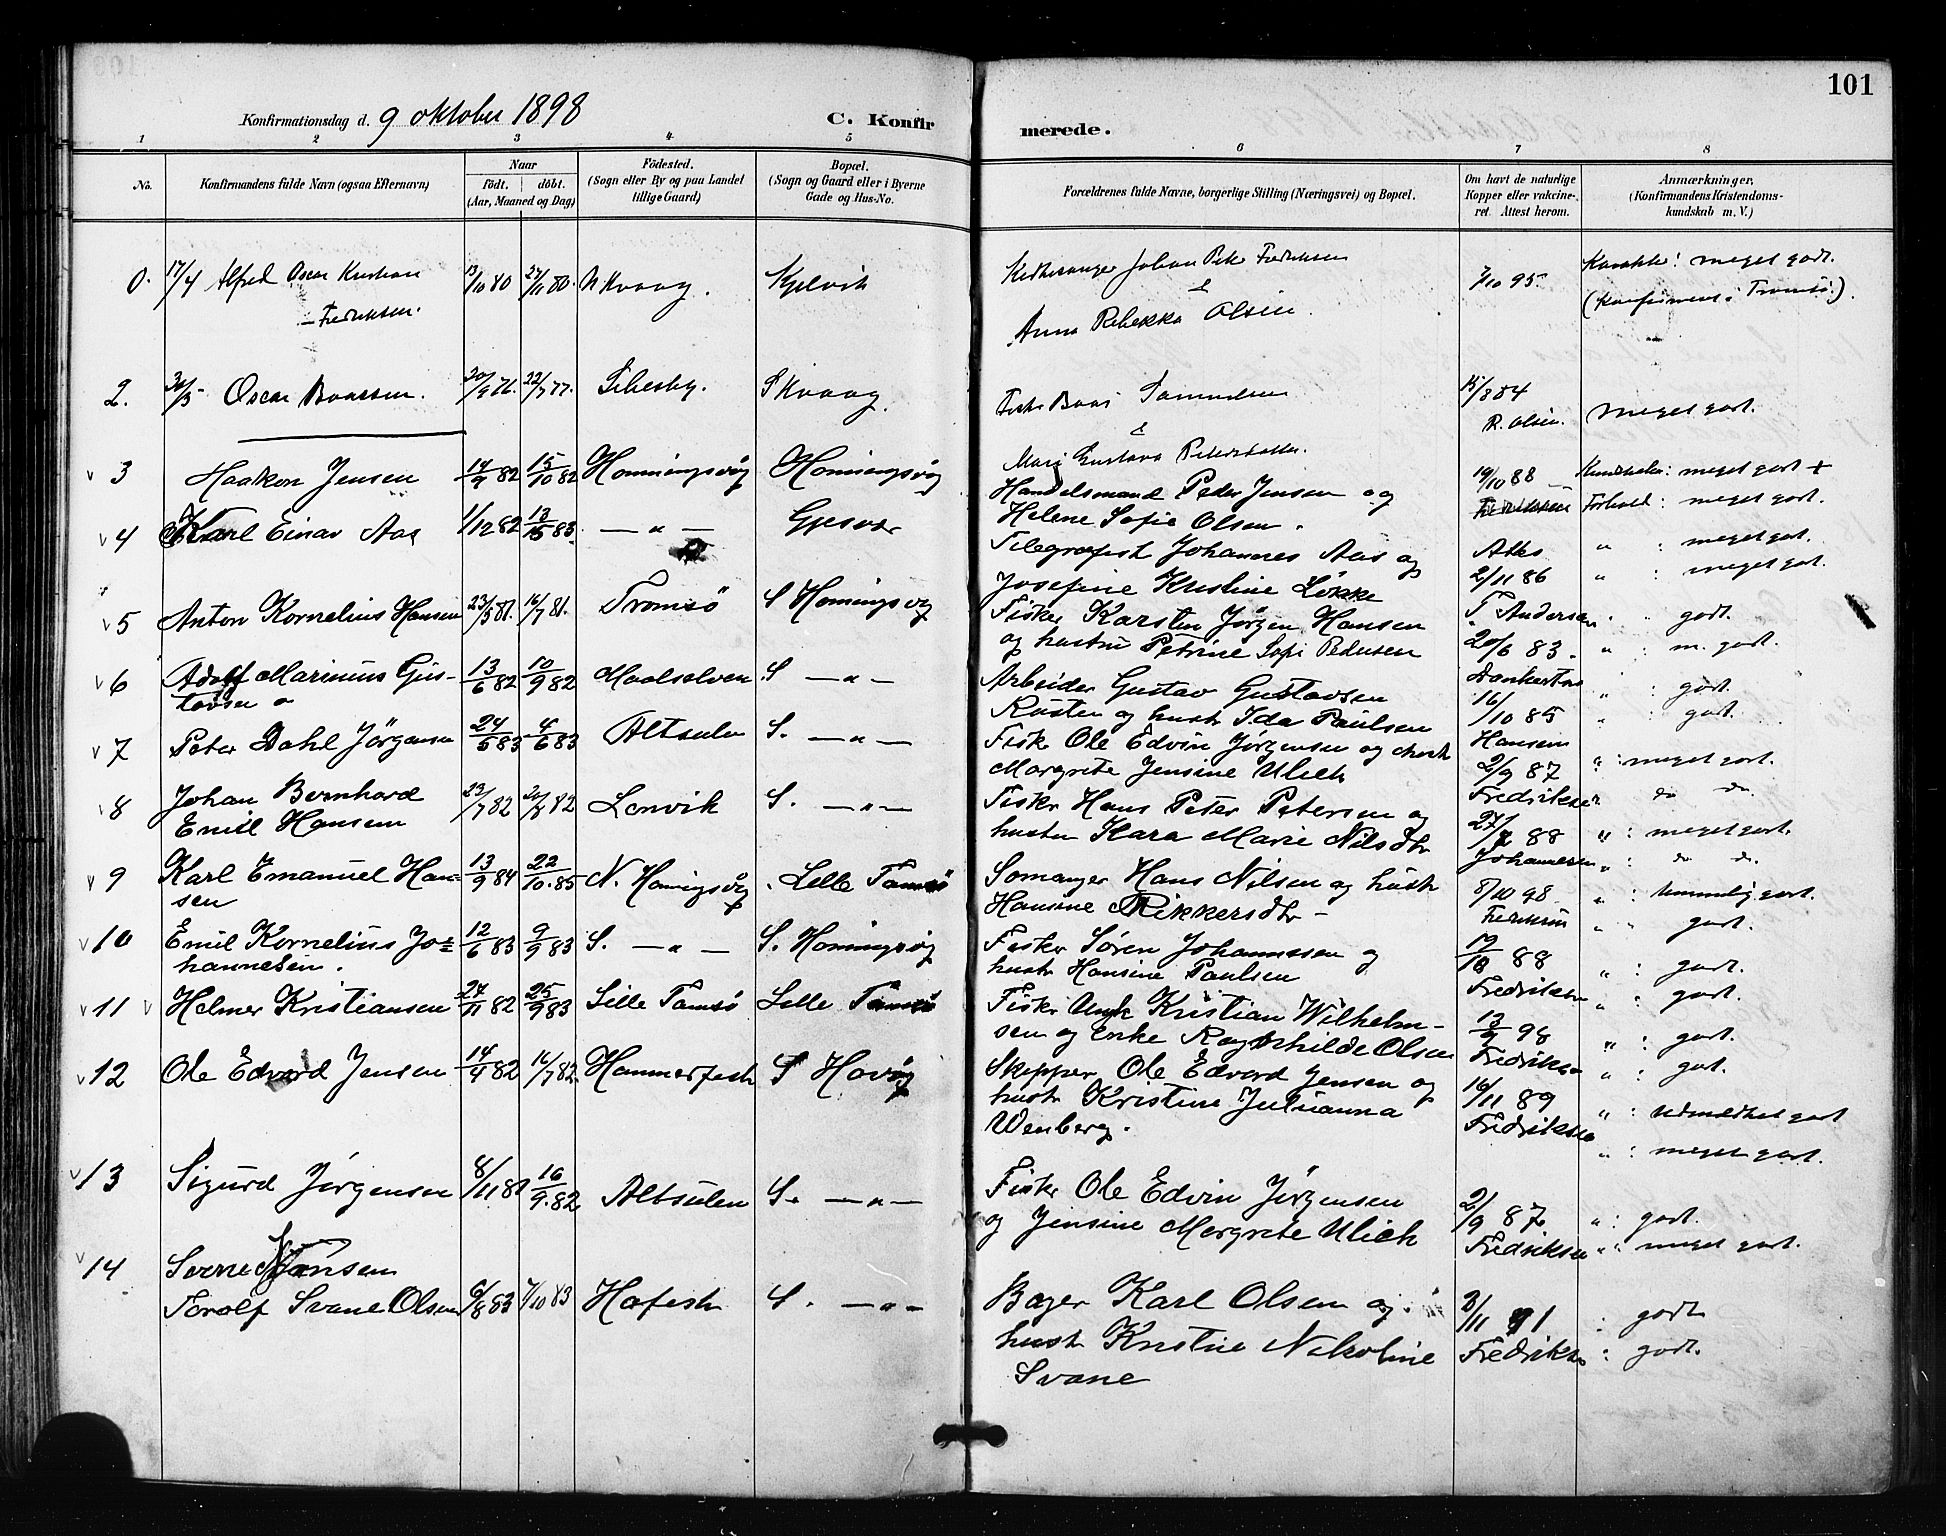 101
Konfirmationsdag d. 9 oktober 1898
C. Konfirmerede.
1 2 3 4 5 6 7 8
No.
Konfirmandens fulde Navn (ogsaa Efternavn)
Naar
födt. döbt.
(Aar, Maaned og Dag)
Födested.
(Sogn eller By og paa Landet
tillige Gaard)
Bopæl.
(Sogn og Gaard eller i Byerne
Gade og Hus-No.
Forældrenes fulde Navne, borgerlige Stilling (Næringsvei) og Bopæl.
Om havt de naturlige
Kopper eller vakcine-
ret. Attest herom.
Anmærkninger,
(Konfirmandens Kristendoms-
kundskab m. V.)
0. 17/4 Alfred Oscar Kristian 13/10 80 27/11 80. Kjelvik
Fedriksen.
Johan Fedriksen
&
Anna Rebekka Olsen.
7/10 95. meget godt.
(Konfirmeret i Tromsö.)
2. Oscar Baarsen. 20/9 76. 22/7 77. Lebesby. Skvaag.
Samuelsen
&
15/8 84
R. Olsen. meget godt.
3 Haakon Jensen 14/9 82 15/10 82 Honningsvåg Honingsvåg
Handelsmand Peder Jensen og
Helene Sofie Olsen.
19/10 88 meget godt +
Fredriksen Forhold: meget godt.
4 Karl Einar Aas 1/12 82 — " — Gjesvær
Telegrafist Johannes Aas og
Josefine Kristine Løkke
Attes " : meget godt.
2/11 86 " : meget godt.
5 Anton Kornelius Hansen 23/5 81. 16/7 81. Tromsö S Honingsvåg
Fisker Karsten Jørgen Hansen
og hustru Petrine Sofi Pedersen
T. Andersen " godt.
20/6 83. " : m. godt.
6 Adolf Marinius Gus-
tavsen 13/6 82 10/9 82 Maalselven S — " —
Arbeider Gustav Gustavsen
Rosten og hustr Ida Paulsen
" : godt.
16/10 85 " : godt.
7 Peter Dahl Jörgensen 24/5 83 4/6 83 Altsulen S. — " —
Fisker Ole Edvin Jørgensen og hustr
Margrete Jensine Ulich
Hansen " : meget godt.
2/9 87
8 Johan Bernhard
Emil Hansen 23/7 82 Lenvik S. — " —
Fisker Hans Peter Petersen og
hustru Kara Marie Nilsdtr
Fredriksen do do.
88 " : meget godt.
9 Karl Emanuel Han-
sen 13/9 84 22/10 85 N. Honigsvåg Lille Tamsö
Hans Nilsen og hustr
Hansine Rikkersdtr —
Johannesen " : do do.
8/10 98. " : temmelig godt.
10 Emil Kornelius Jo-
hannesen. 12/6 83 9/9 83 S. — " — S. Honingsvåg
Fisker Søren Johannssen og
hustr Hansine Paulsen
Fredriksen " godt.
19/10 88 " : godt.
11 Helmer Kristiansen 24/11 82 25/9 83 Lille Tamsö Lille Tamsö
Fisker Kristian Wilhelm-
sen og enke Ragnhilde Olsen
Fredriksen " : godt.
13/9 98 " : godt.
12 Ole Edvard Jensen 14/4 82 16/7 82. Hammerfest S Hovåg
Skipper Ole Edvard Jensen og
hustr Kristine Julianna
Wenberg.
Fredriksen " : godt.
16/11 89 " : udmærket godt
Fredriksen " : meget godt.
13 Sigurd Jörgensen 8/11 81 16/9 82 Altsulen S. — " —
Fisker Ole Edvin Jørgensen
og Jensine Margrete Ulich
2/9 87. " : godt.
Fredriksen " : meget godt.
14 Jensen
Torolf Svane Olsen 6/8 83 7/10 83 Hafest S. — " —
Bager Karl Olsen og
hustr Kristine Nikoline
Svane
8/11 91 : godt
Fredriksen : godt.